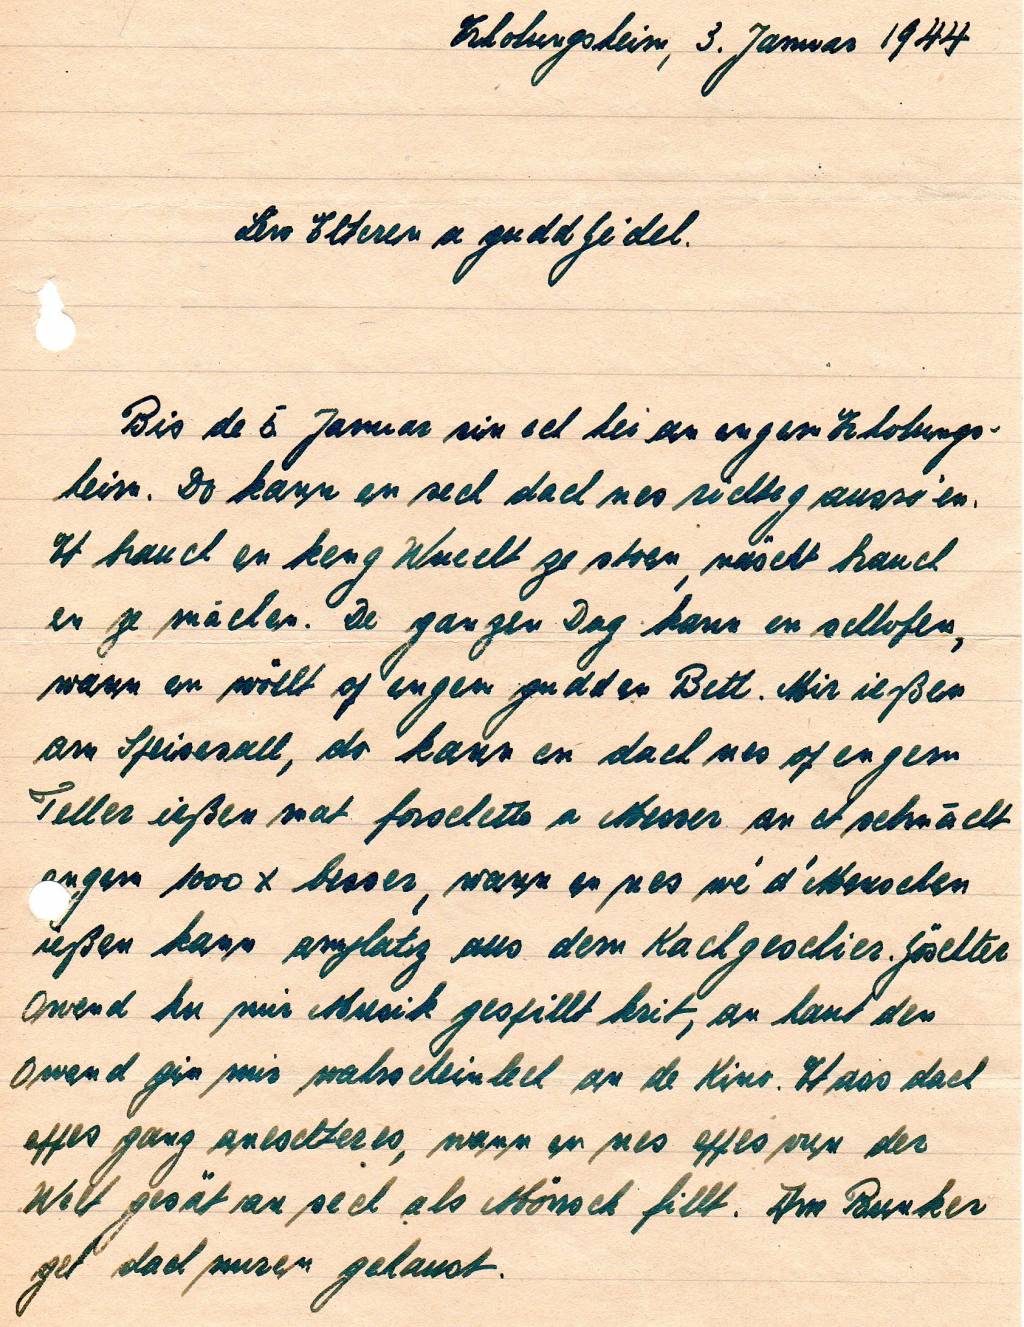 Erholungsheim, 3. Januar 1944
Léw Elteren a gudd Jédel.
Bis de 5. Januar sin ech hei an engem Erholungs-
heim. Do kann en sech dach nes richteg ausro'en.
Et brauch en keng Wuecht ze stoen, näischt brauch
en ze māchen. De ganzen Dag kann en schlofen,
wann en wöllt of engem gudden Bett. Mir ießen
am Speisesall, do kann en dach nes of engem
Teller ießen mat Forschette a Messer an et schmācht
engem 1000 x besser, wann en nes wé d'Menschen
ießen kann amplatz aus dem Kachgeschier. Göschter
Owend hu mir Musik gespillt krit, an haut den
Owend gin mir wahrscheinlech an de Kino. Et ass dach
effes ganz aneschteres, wann en nes effes vun der
Welt gesät an sech als Mönsch fillt. Am Bunker
get dach nuren gelaust.